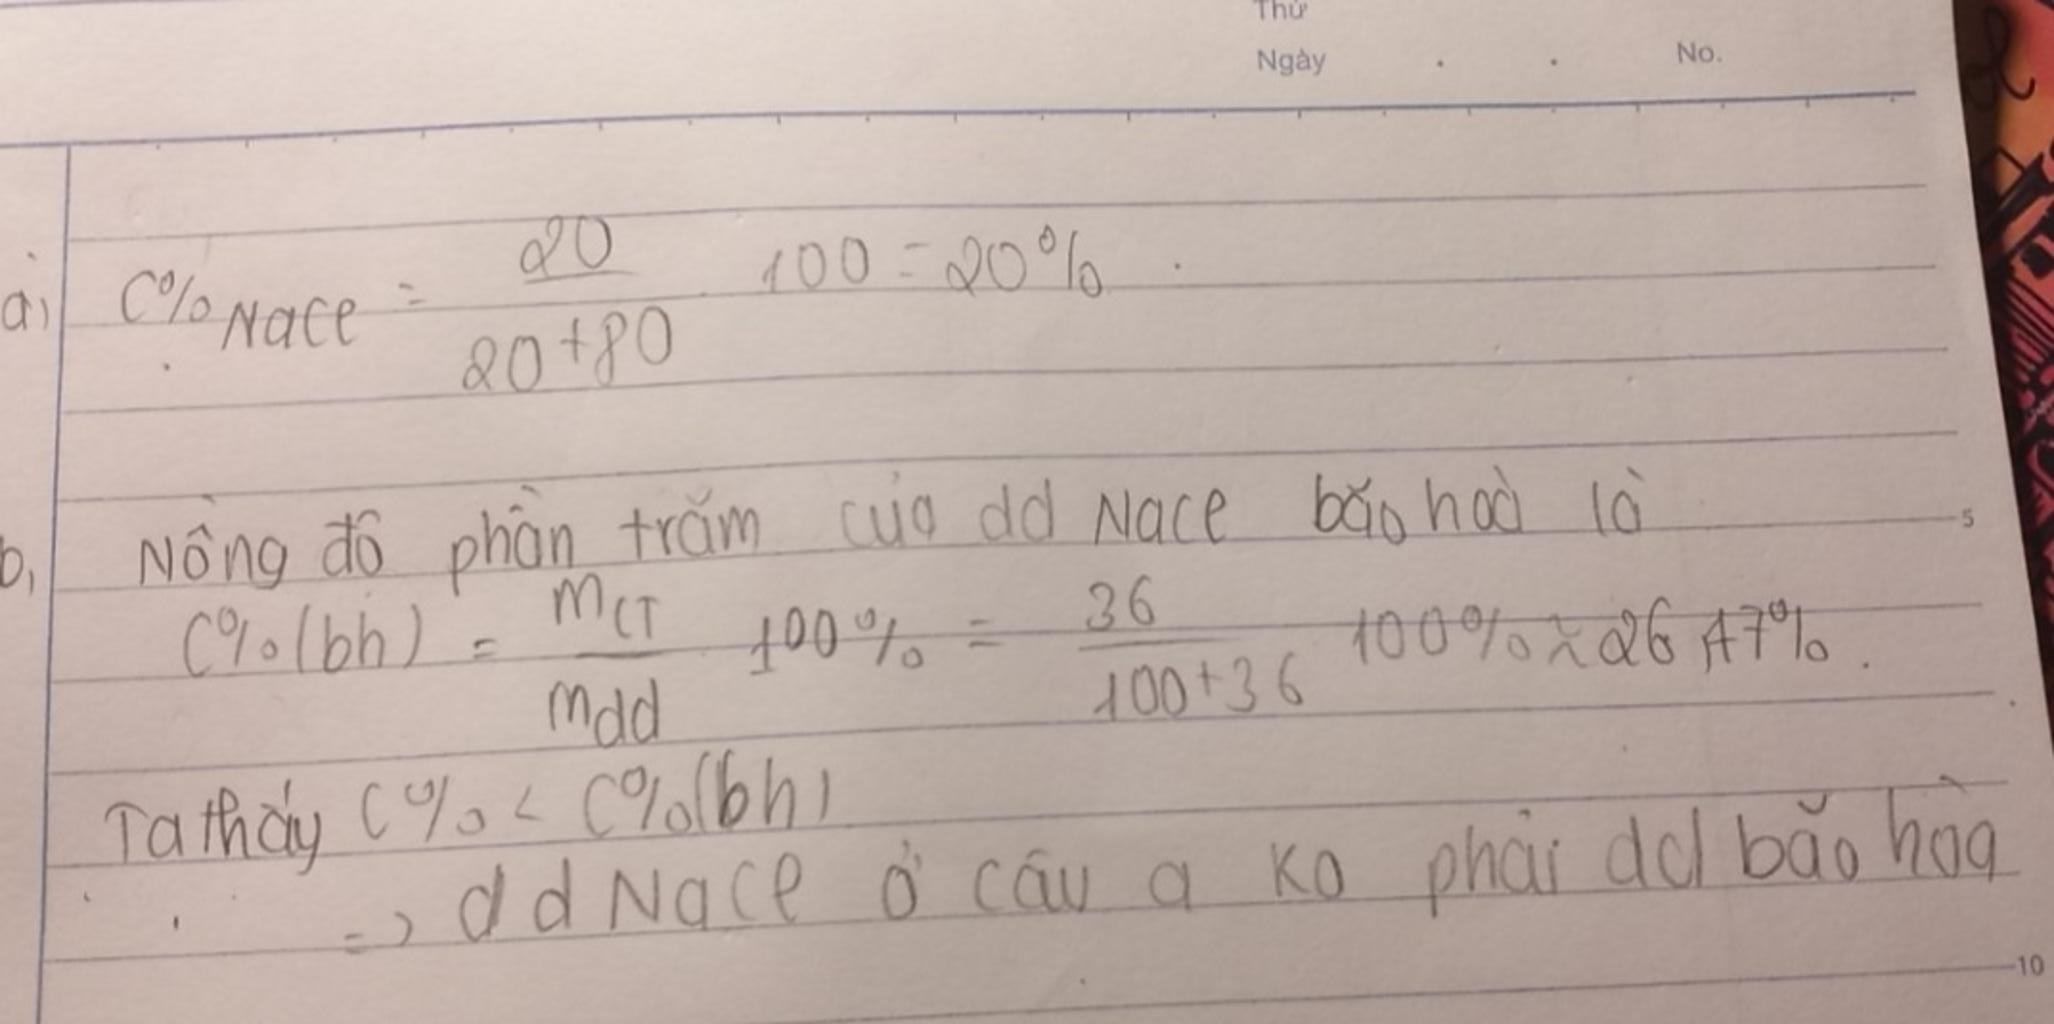 Thứ
Ngày . . No.
a, C% NaCl = 20 / 20+80 . 100 = 20% .
b, Nồng độ phần trăm của dd NaCl bão hoà là
5
C% (bh) = mCT / mdd . 100% = 36 / 100+36 . 100% ≈ 26,47% .
Ta thấy C% < C% (bh)
=> dd NaCl ở câu a ko phải dd bão hòa
10